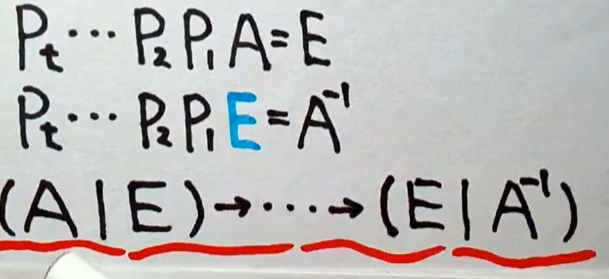 Pₜ⋯P₂P₁A=E
Pₜ⋯P₂P₁E=A⁻¹
(A|E)→⋯→(E|A⁻¹)